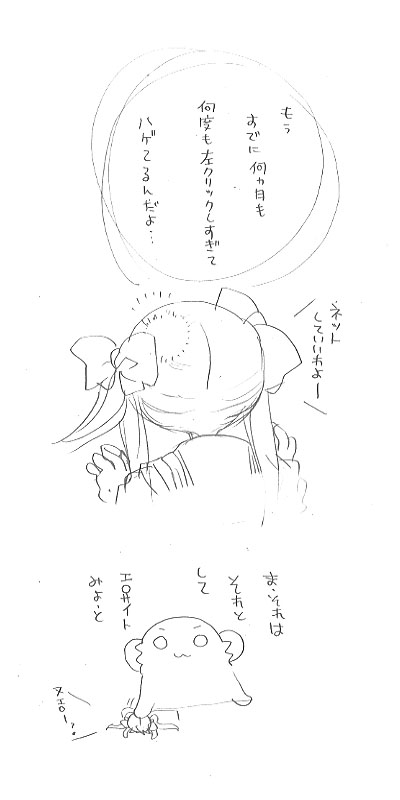 もう
すでに何ヵ月も
何度も左クリックしすぎて
ハゲてるんだよ…
ネット
していいわよー
ま、それは
それと
して
エロサイト
みよっと
ヌエロー?